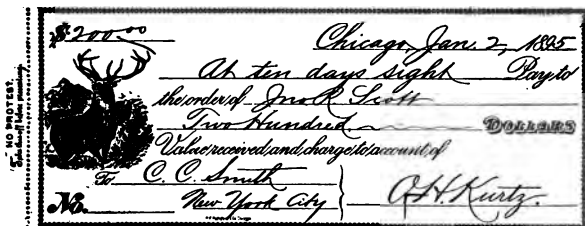 $200.00
Chicago, Jan. 2, 1895
At ten days sight Pay to
the order of Jno R. Scott
Two Hundred DOLLARS
Value received and charge to account of
To C. C. Smith
No. New York City
A. H. Kurtz.
NO PROTEST.